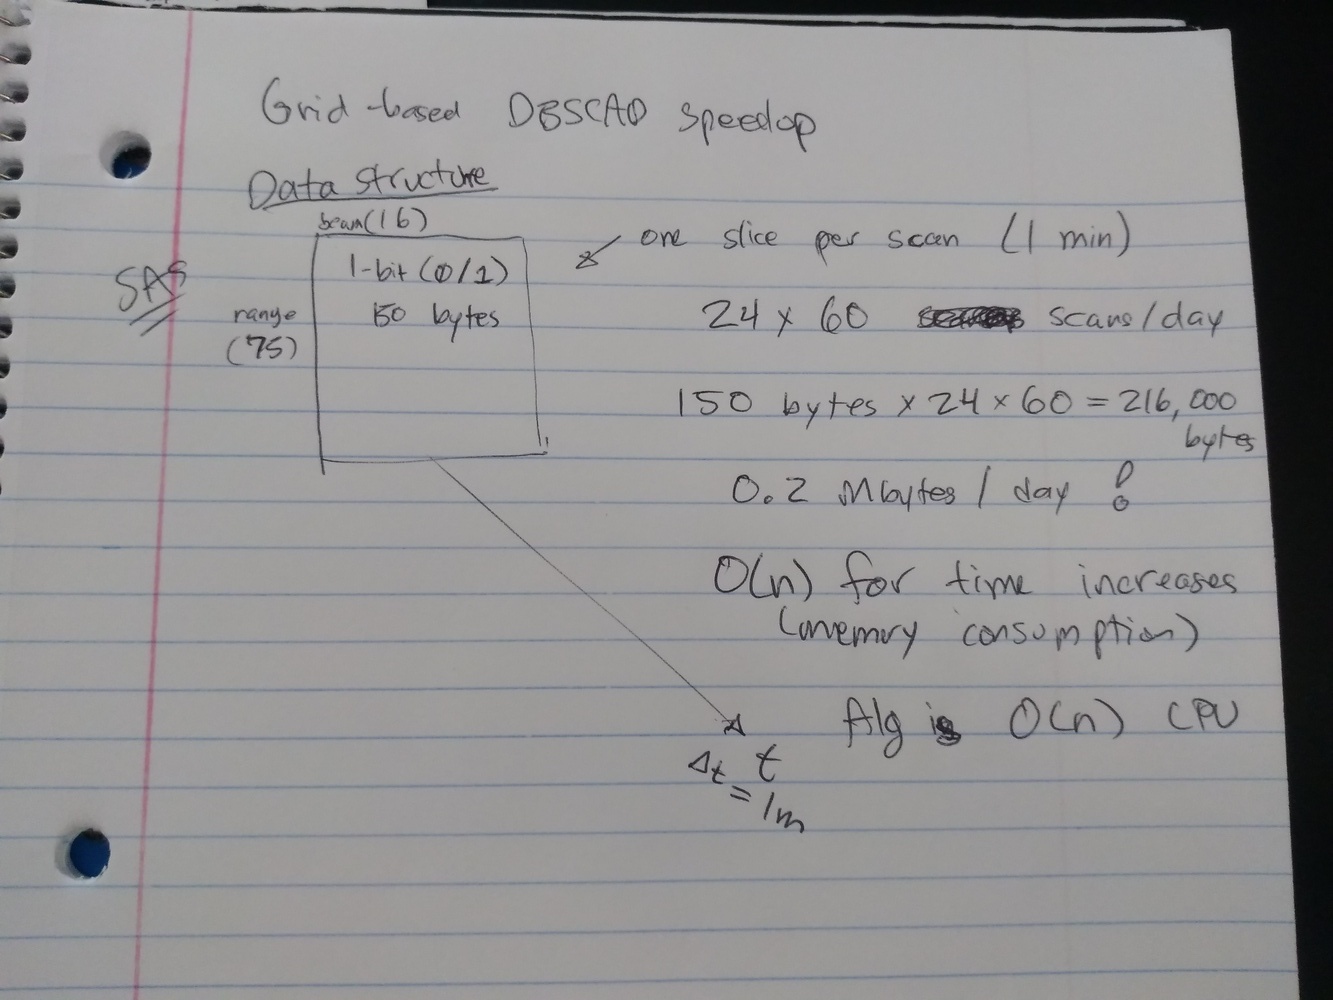 Grid-based DBSCAN speedup
Data Structure
beam(16)
one slice per scan (1 min)
1-bit (0/1)
SAS
range
(75)
150 bytes
24 x 60 scans/day
150 bytes x 24 x 60 = 216,000
bytes
0.2 Mbytes / day !
O(n) for time increases
(memory consumption)
Alg is O(n) CPU
Δt t
= 1m